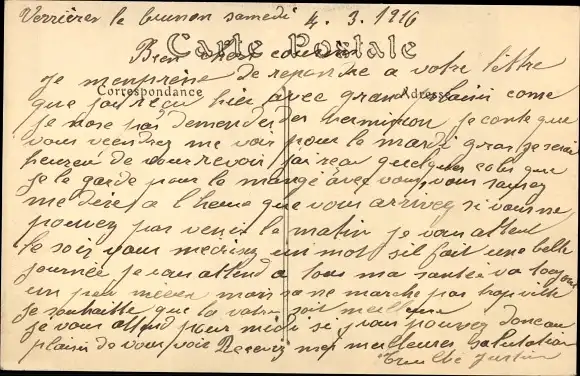 Verrières le buison samedi 4. 3. 1916
Carte Postale
Bien chers cousins
Correspondance
Adresse
Je m'enprèse de repondre a votre lettre
que jai reçu hier avec grand plaisir come
je nose pas demender des permision je conte que
vous veendrez me voir pour le mardi gras je serai
heureu de vous revoir jai reçu quelques colis que
je le garde pour le mangé avec vous, vous
me dires a l'heure que vous arrivez si vous ne
pouvez pas venir le matin je vous attent
le soir vous mecrires un mot sil fait une belle
journée je vous attend a tous ma santée va toujour
un peu mieux mais sa ne marche pas trop vitte
Je souhaitte que la votre soit meilleure
Je vous attend pour midi si vous pouvez doncau
plaisir de vous voir Recevez mes meilleures salutation
Justin